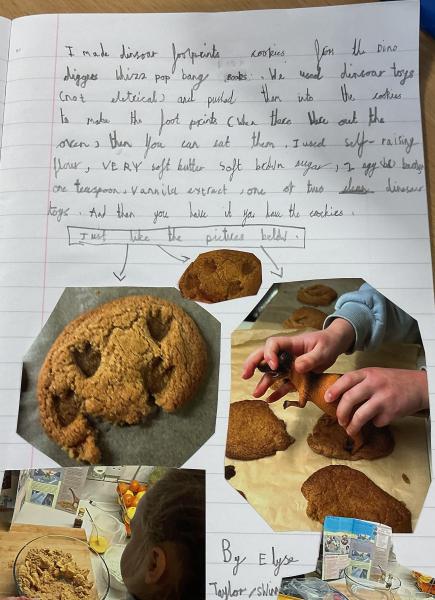 I made dinsoar footprints cookies from the Dino
digges whizz pop bang books. We used dinsoar toys
(not eletrical) and pushed them into the cookies
to make the foot prints (When there out the
oven) then you can eat them. I used self-raising
flour, VERY soft butter soft brown sugar, 1 egg,
one teaspoon, Vannila extract, one of two dinosaur
toys. And then you have it you have the cookies.
Just like the pictures below.
By Elyse
Taylor